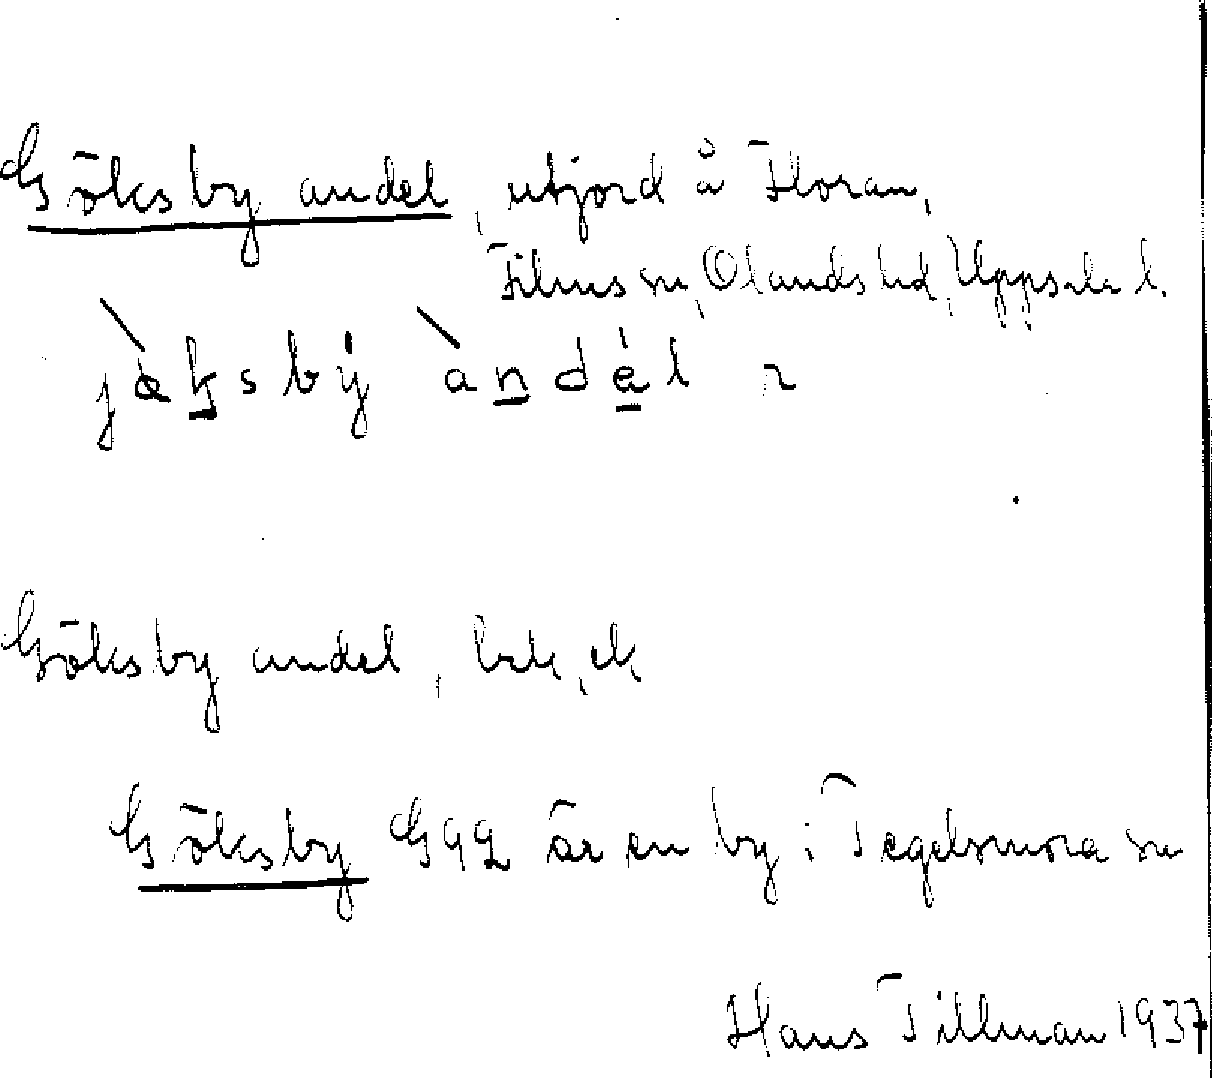 Göksby andel, utjord å Floran,
Films sn, Olands hd, Uppsala l.
andel
Göksby andel, bek, ek
Göksby G92 är en by i Tegelsmora sn
Hans Tillman 1937